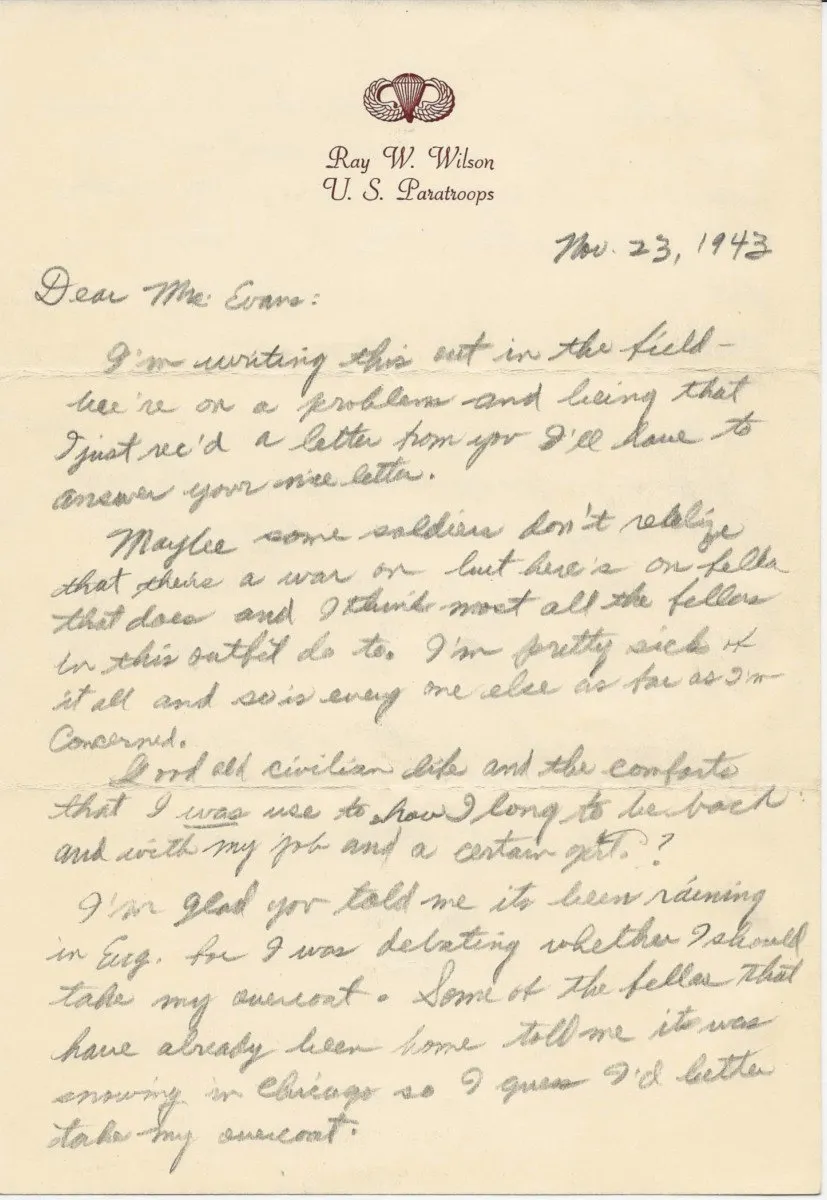 Ray W. Wilson
U. S. Paratroops
Nov. 23, 1943
Dear Mrs. Evans:
I'm writing this out in the field –
we're on a problem and being that
I just rec'd a letter from you I'll have to
answer your nice letter.
Maybee some soldiers don't relelize
that theirs a war on but here's on fella
that does and I think most all the fellas
in this outfit do to. I'm pretty sick of
it all and so is every one else as far as I'm
Concerned.
Good old civilian life and the comforts
that I was use to how I long to be back
and with my job and a certain girl. ?
I'm glad you told me its been raining
in Eug. for I was debating whether I should
take my overcoat. Some of the fellas that
have already been home told me it was
snowing in Chicago so I guess I'd better
take my overcoat.